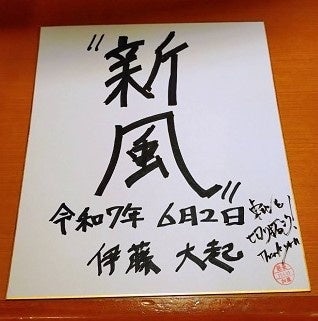 "新風"
令和7年 6月2日
伊藤 大起
切り
Thank you